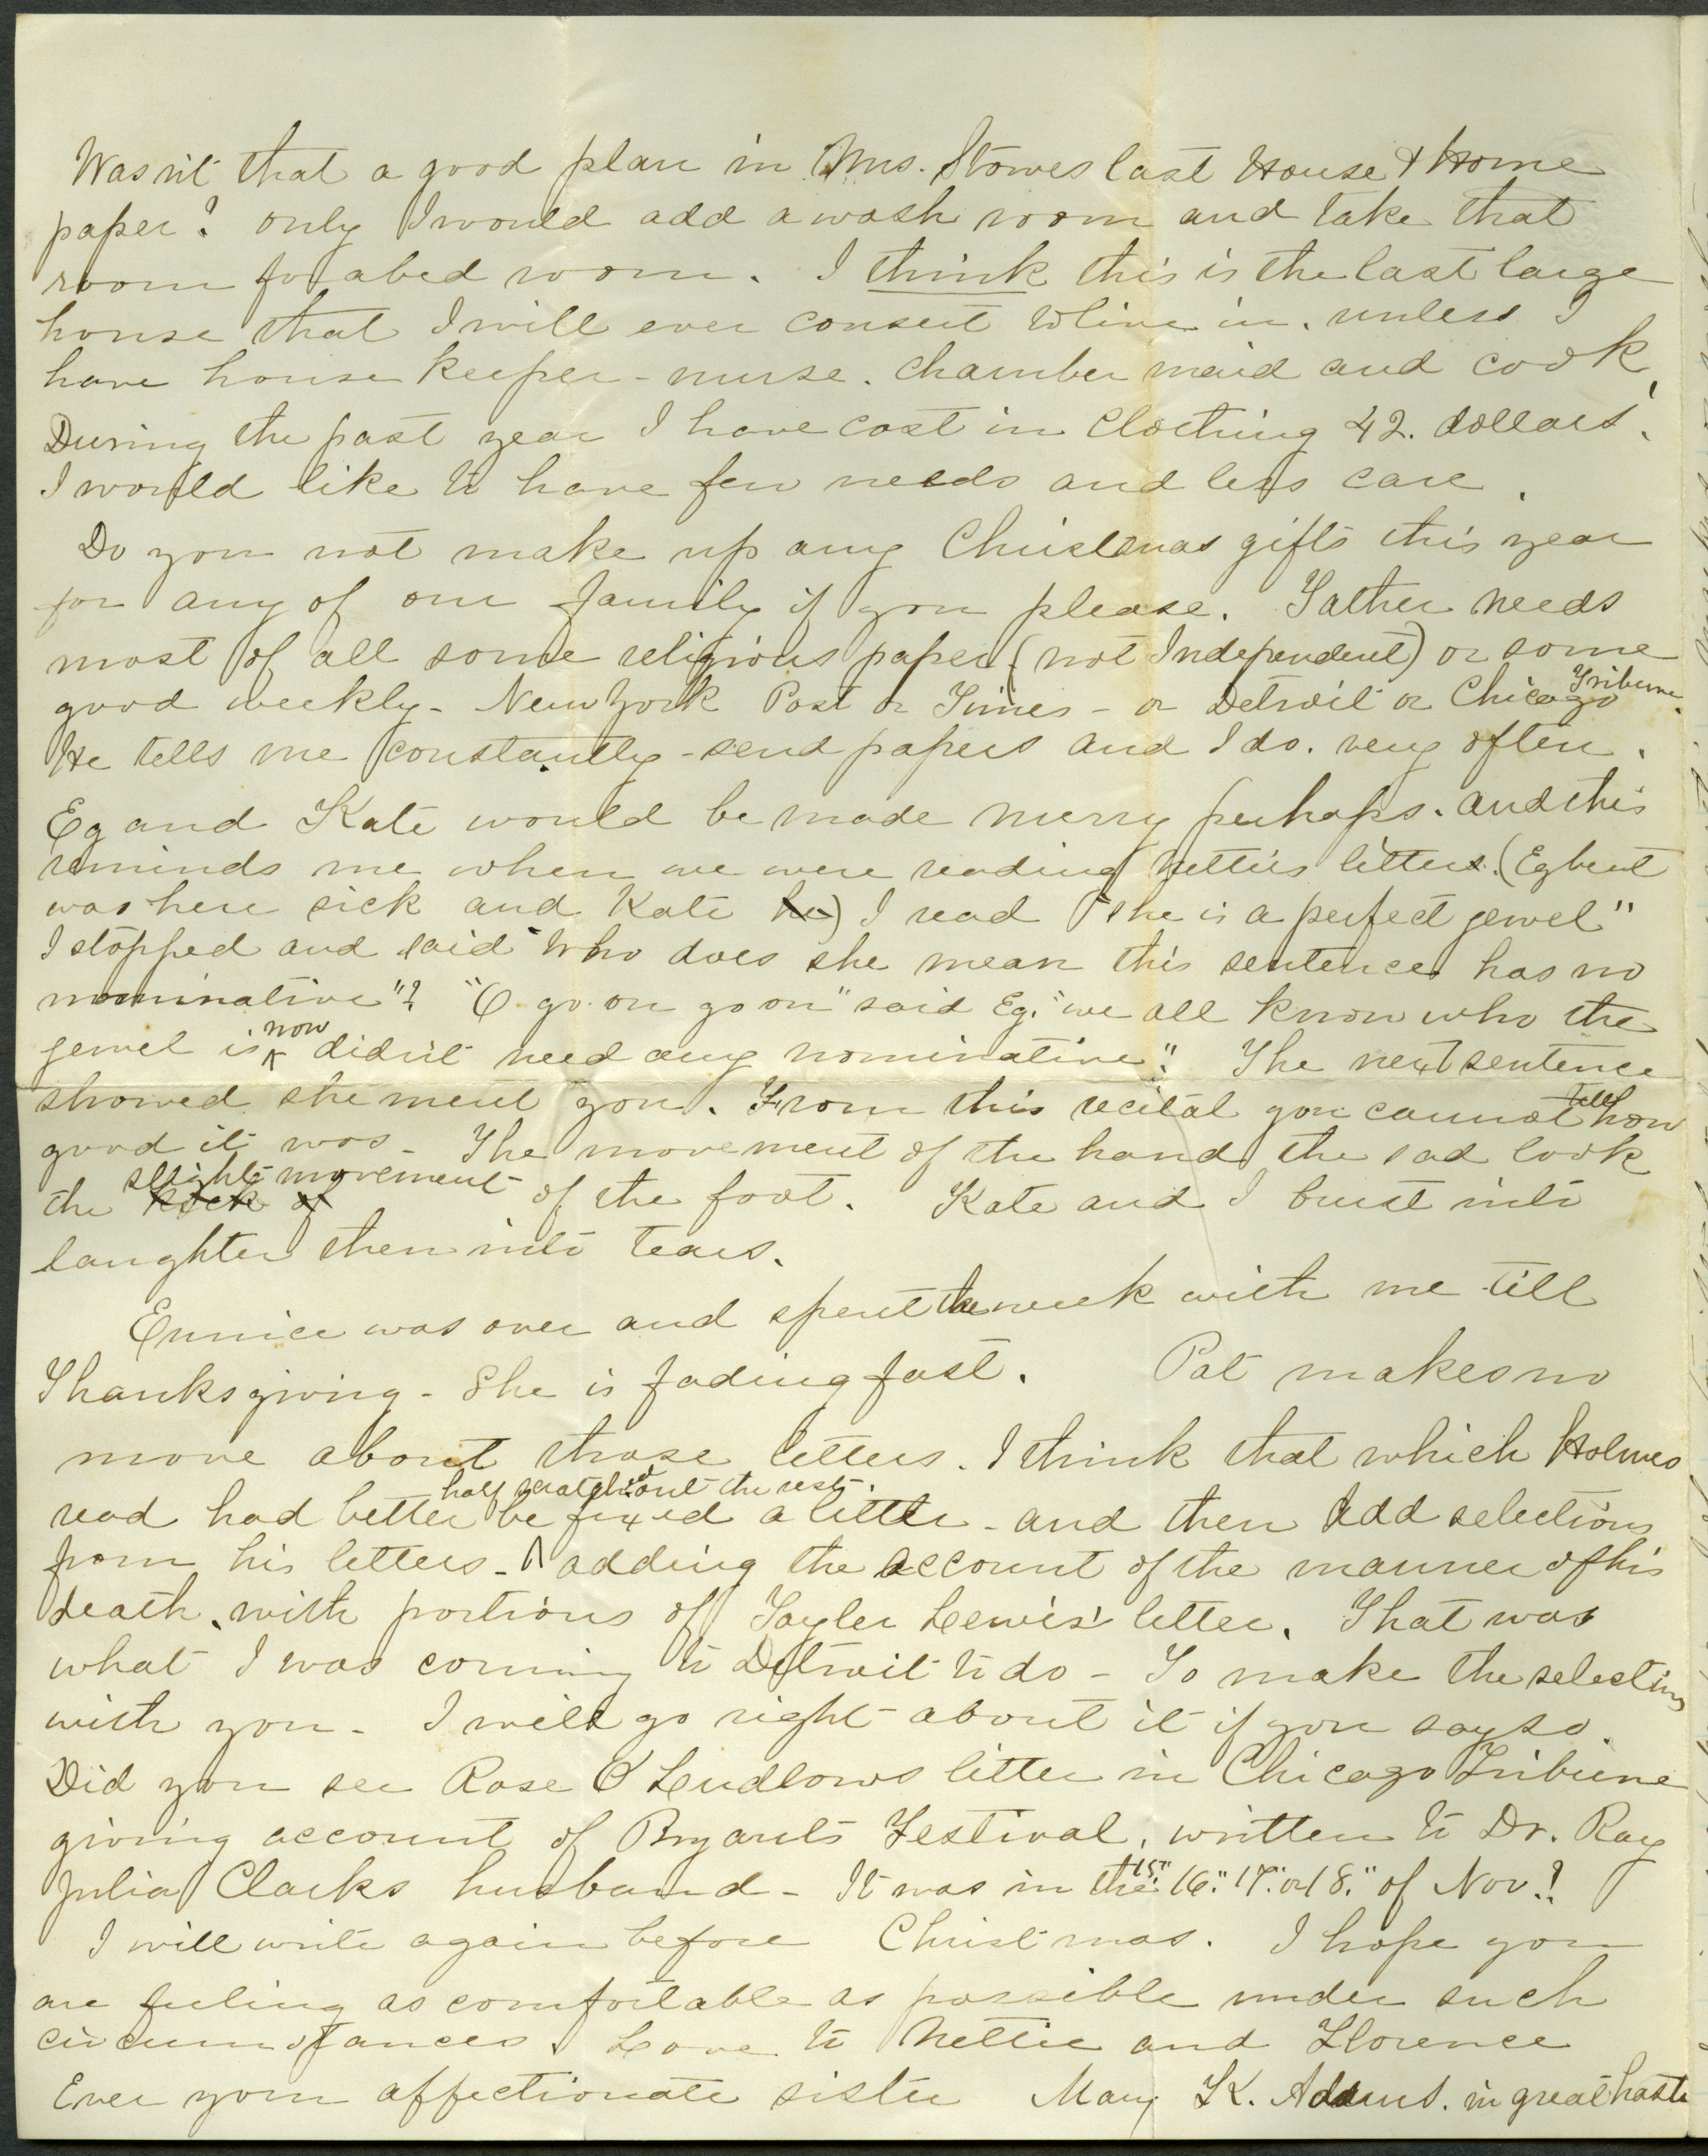 Wasn't that a good plan in Mrs. Stowes last House & Home
paper? only I would add a wash room and take that
room for a bed room. I think this is the last large
house that I will ever consent to live in. unless I
have house keeper - nurse. chamber maid and cook.
During the past year I have cost in clothing 42. dollars.
I would like to have few needs and less care.
Do you not make up any Christmas gifts this year
for any of our family if you please. Father needs
most of all some religious paper (not Independent) or some
good weekly - New York Post or Times - or Detroit or Chicago Tribune.
He tells me constantly - send papers and I do. very often.
Eg and Kate would be made merry perhaps. and this
reminds me when we were reading Nettie's letters. (Egbert
was here sick and Kate he) I read "she is a perfect jewel"
I stopped and said "Who does she mean this sentence has no
nominative"? "O go on go on" said Eg. "we all know who the
jewel is now didn't need any nominative". The next sentence
showed she ment you. From this recital you cannot tell how
good it was - The movement of the hand the sad look
the kick of slight movement of the foot. Kate and I burst into
laughter then into tears.
Eunice was over and spent the week with me till
Thanksgiving - She is fading fast. Pat makes no
move about those letters. I think that which Holmes
read had better be fixed a little - and then add selections
from his letters - half scratched out the rest. adding the account of the manner of his
death, with portions of Tayler Lewis' letter. That was
what I was coming to Detroit to do - To make the selections
with you - I will go right about it if you say so.
Did you see Rose O Ludlows letter in Chicago Tribune
giving account of Bryants Festival, written to Dr. Ray
Julia Clarks husband - It was in the 15" 16." 17." or 18." of Nov.!
I will write again before Christmas. I hope you
are feeling as comfortable as possible under such
circumstances. Love to Nettie and Florence
Ever your affectionate sister Mary K. Adams. in great haste